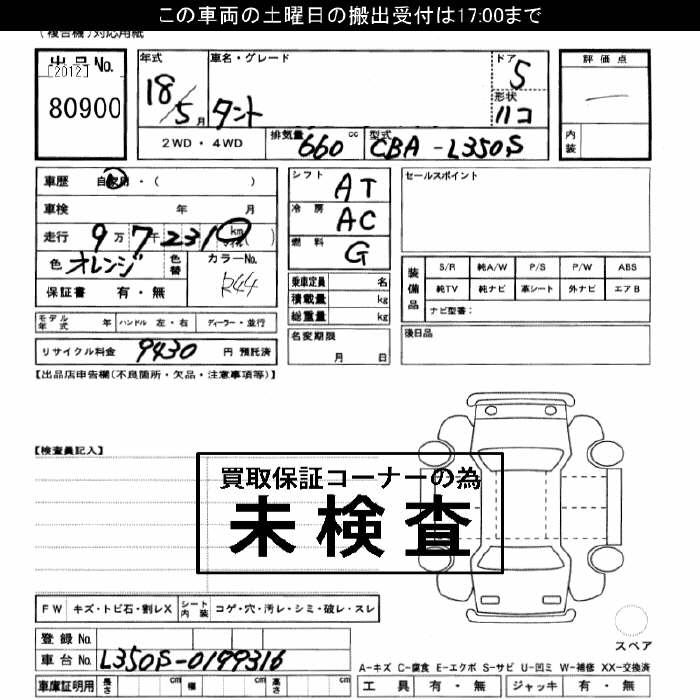 この車両の土曜日の搬出受付は17:00まで
(複合機)対応用紙
出品No.
[2012]
80900
年式
18/5月
車名・グレード
タント
ドア
5
形状
ハコ
2WD・4WD
排気量
660
cc
型式
CBA-L350S
評価点
—
内装
車歴 自家用・( )
車検 年 月
走行 9万7千231 km マイル( )
色 オレンジ
色替
カラーNo.
R44
保証書 有・無
シフト
AT
冷房
AC
燃料
G
乗車定員 名
積載量 kg
総重量 kg
名変期限
月 日
セールスポイント
装備品
S/R 純A/W P/S P/W ABS
純TV 純ナビ 革シート 外ナビ エアB
ナビ型番:
後日品
モデル年式 年 ハンドル 左・右 ディーラー・並行
リサイクル料金 9430 円 預託済
【出品店申告欄(不良箇所・欠品・注意事項等)】
【検査員記入】
買取保証コーナーの為
未検査
FW キズ・トビ石・割レX シート内装 コゲ・穴・汚レ・シミ・破レ・スレ
登録No.
車台No. L350S-0199316
車庫証明用 長さ cm 幅 cm 高さ cm
スペア
A-キズ C-腐食 E-エクボ S-サビ U-凹ミ W-補修 XX-交換済
工具 有・無 ジャッキ 有・無